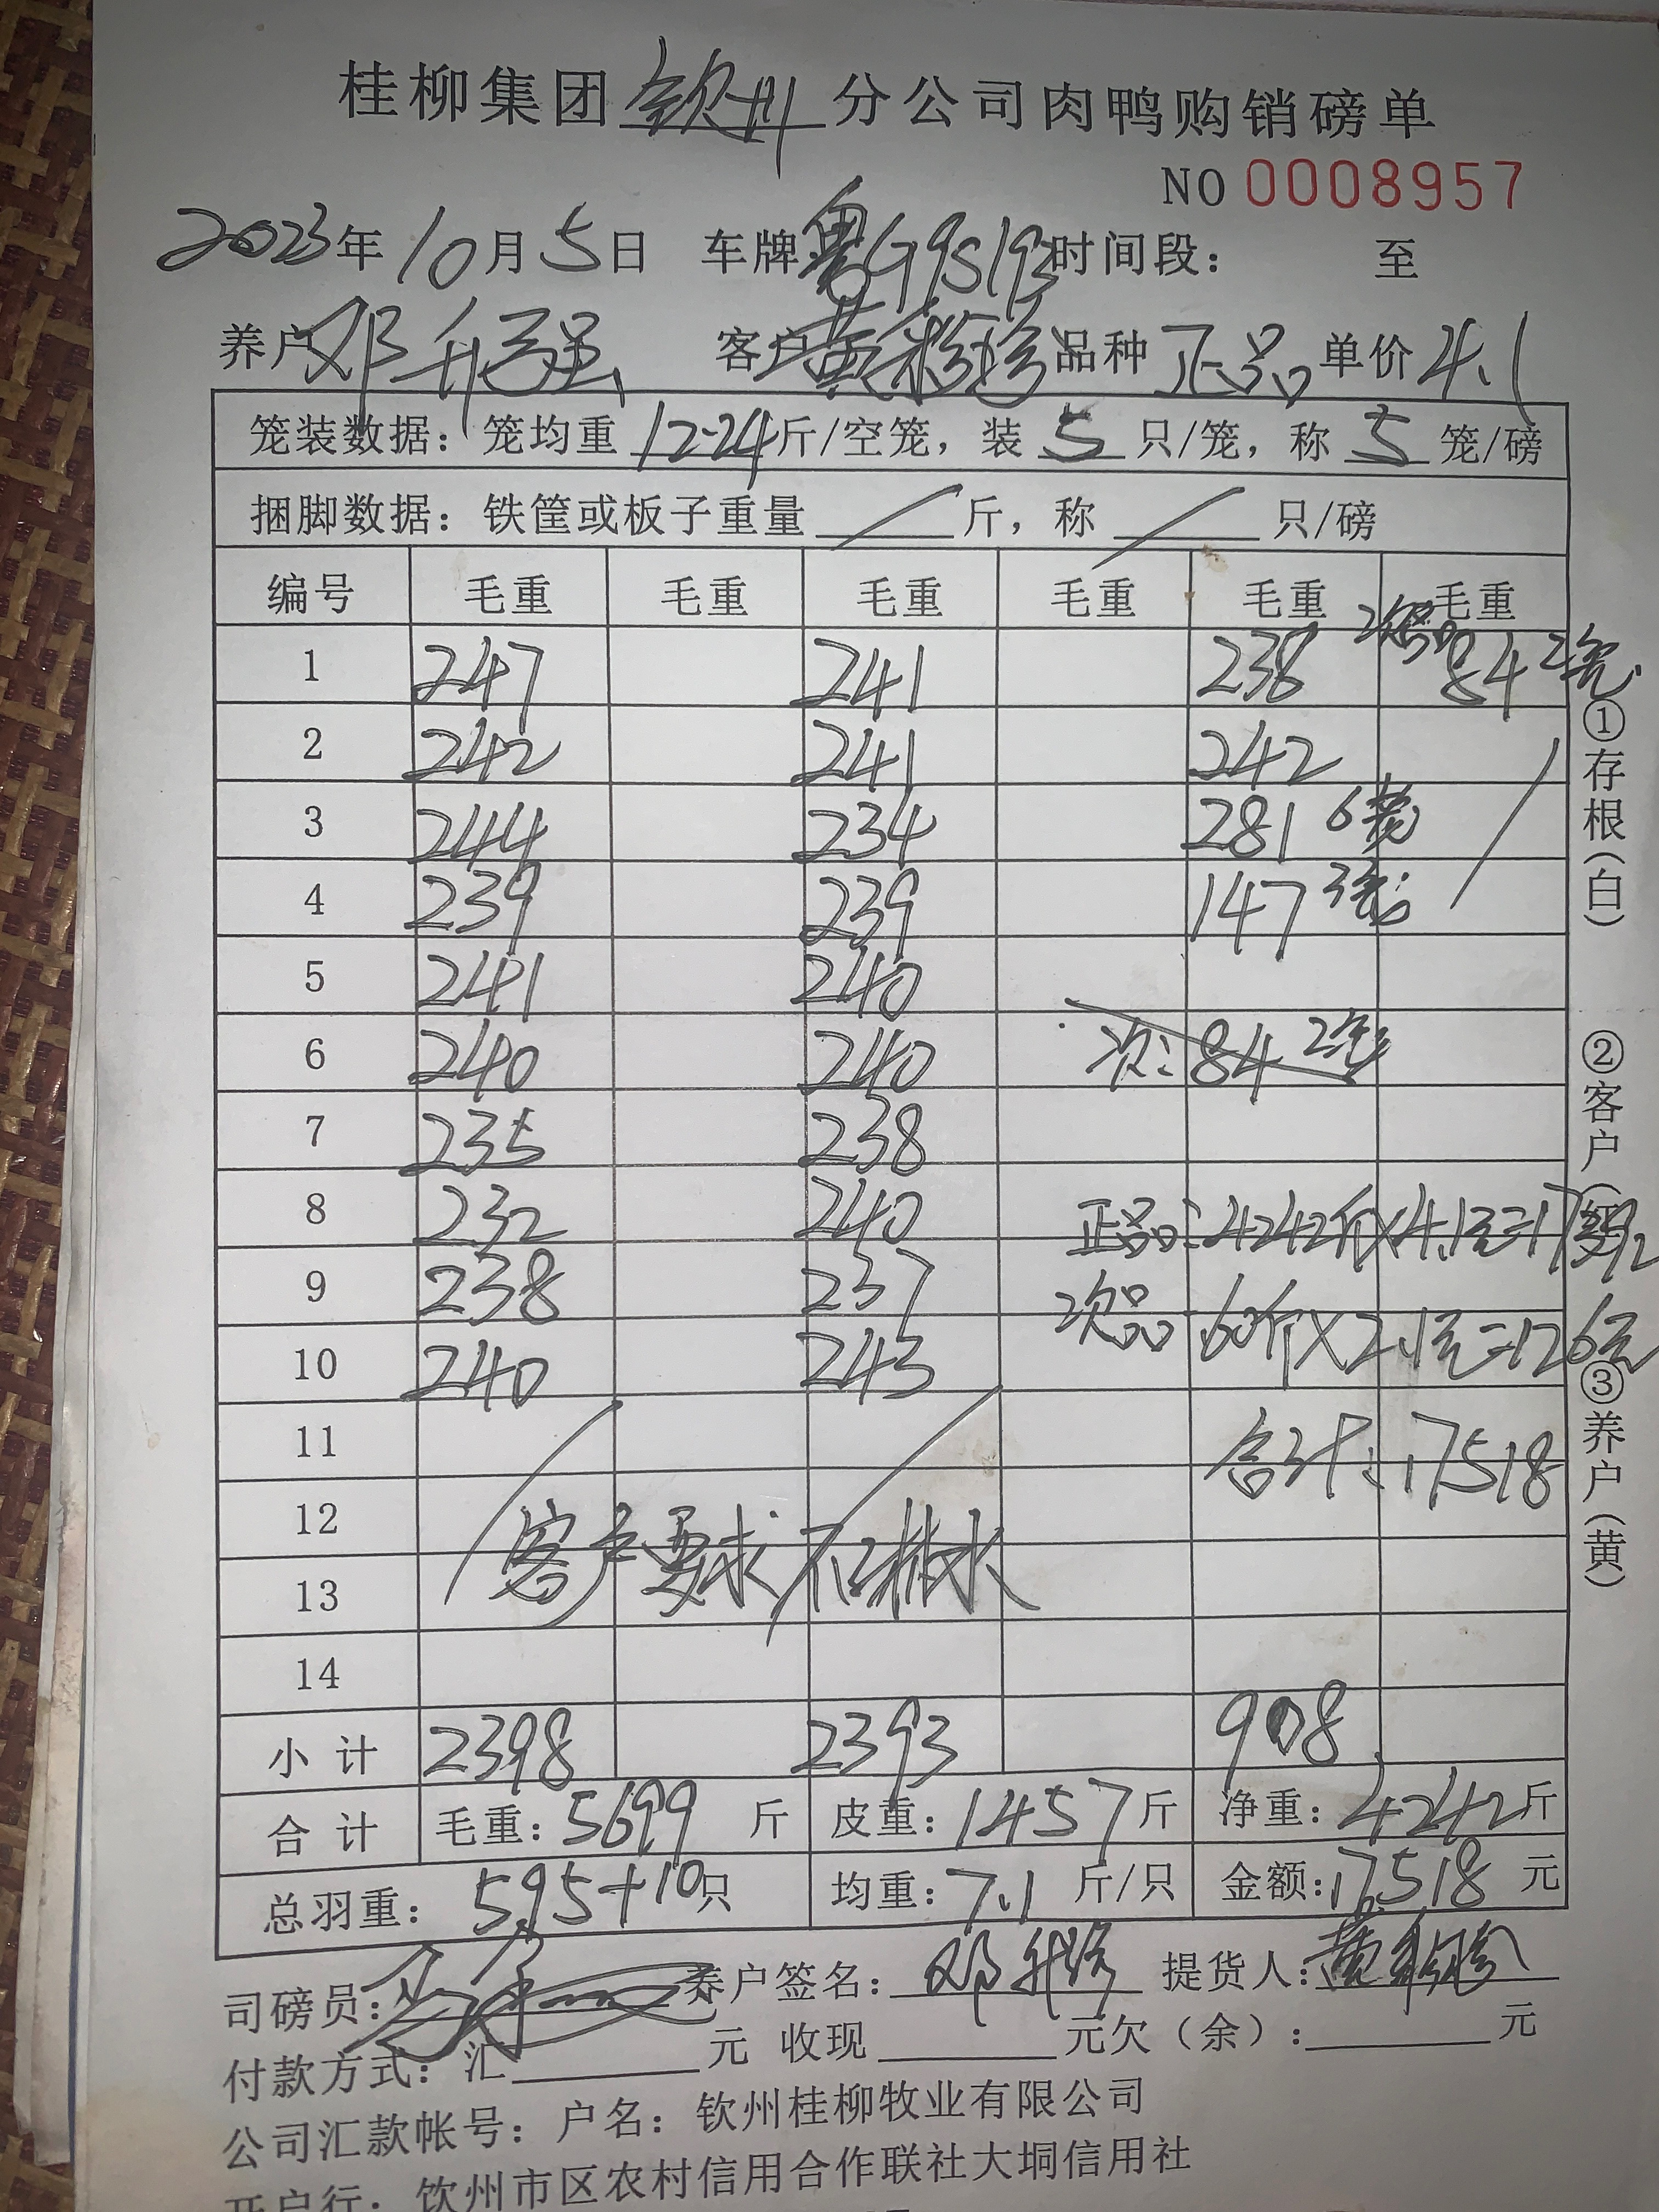 桂柳集团钦州分公司肉鸭购销磅单
NO 0008957
2023年10月5日 车牌:粤G9S193时间段: 至
养户邓升强 客户黄彩珍品种正品单价4.1
笼装数据: 笼均重12-24斤/空笼, 装5只/笼, 称5笼/磅
捆脚数据: 铁筐或板子重量/斤, 称/只/磅
编号 毛重 毛重 毛重 毛重 毛重 毛重
1 247 241 238 次品84 2壳
2 242 241 242
3 244 234 281 6笼
4 239 239 147 3壳
5 241 240
6 240 240 次:84 2壳
7 235 238
8 232 240 正品:4242斤×4.1元=17392
9 238 237 次品 60斤×2.1元=126元
10 240 243
11 合计:17518
12 客户要求不排水
13
14
小计 2398 2393 908
合计 毛重:5699斤 皮重:1457斤 净重:4242斤
总羽重: 595+10只 均重:7.1斤/只 金额:17518元
司磅员: 养户签名: 邓升强 提货人: 黄彩珍
付款方式: 汇 元 收现 元欠(余): 元
公司汇款帐号: 户名: 钦州桂柳牧业有限公司
开户行: 钦州市区农村信用合作联社大垌信用社
①存根(白)
②客户(红)
③养户(黄)